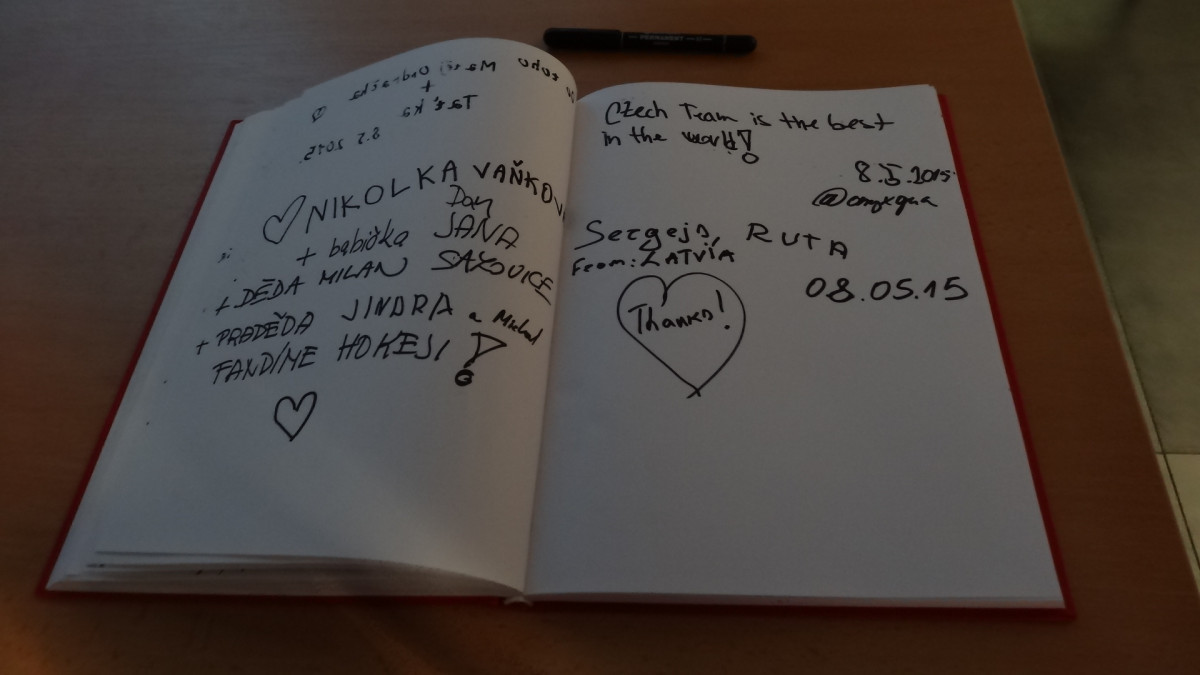 PERMANENT
8.5.2015
♡ NIKOLKA VAŇKOV
Day
+ babička JANA
+ DĚDA MILAN
+ PRADĚDA JINDRA a Michal
FANDÍME HOKEJI !
♡
Czech Team is the best
in the world!
8.5.2015
Sergejs, RUTA
From: LATVIA
08.05.15
Thanks!